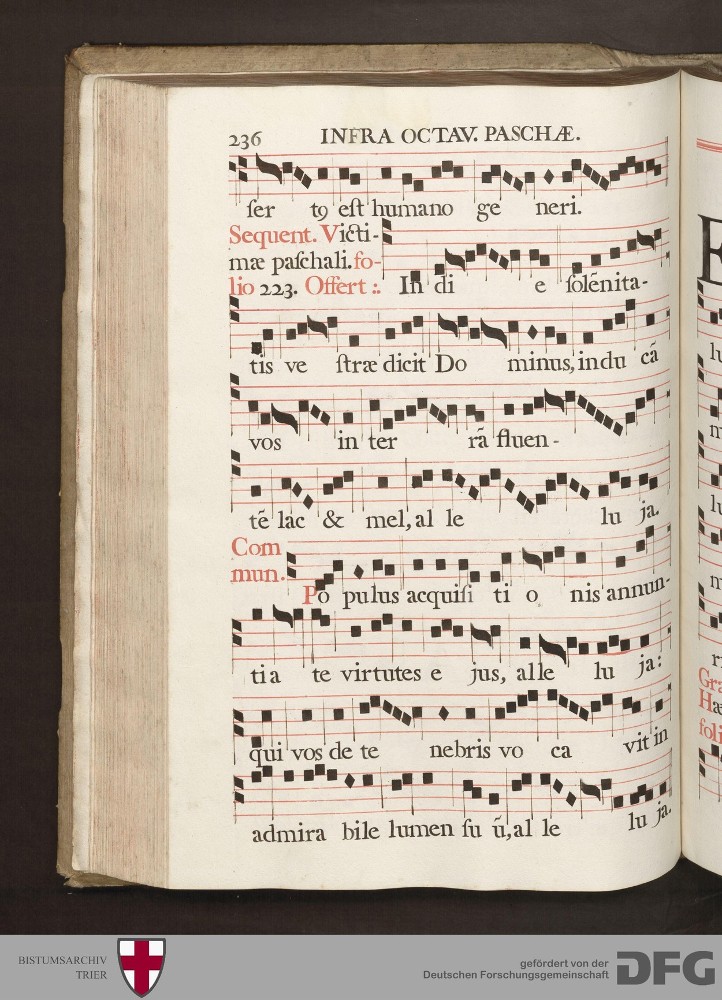 236 INFRA OCTAV. PASCHÆ.
ſer t9 eſt humano ge neri.
Sequent. Victi-
mæ paſchali. fo-
lio 223. Offert :. In di e ſolẽnita-
tis ve ſtræ dicit Do minus, indu cã
vos in ter rã fluen-
tẽ lac & mel, al le lu ja.
Com
mun. Po pulus acquiſi ti o nis annun-
tia te virtutes e jus, alle lu ja:
qui vos de te nebris vo ca vit in
admira bile lumen ſu ũ, al le lu ja.
lu
m
lu
m
ri
Gra
Hæ
foli
BISTUMSARCHIV
TRIER
gefördert von der
Deutschen Forschungsgemeinschaft
DFG